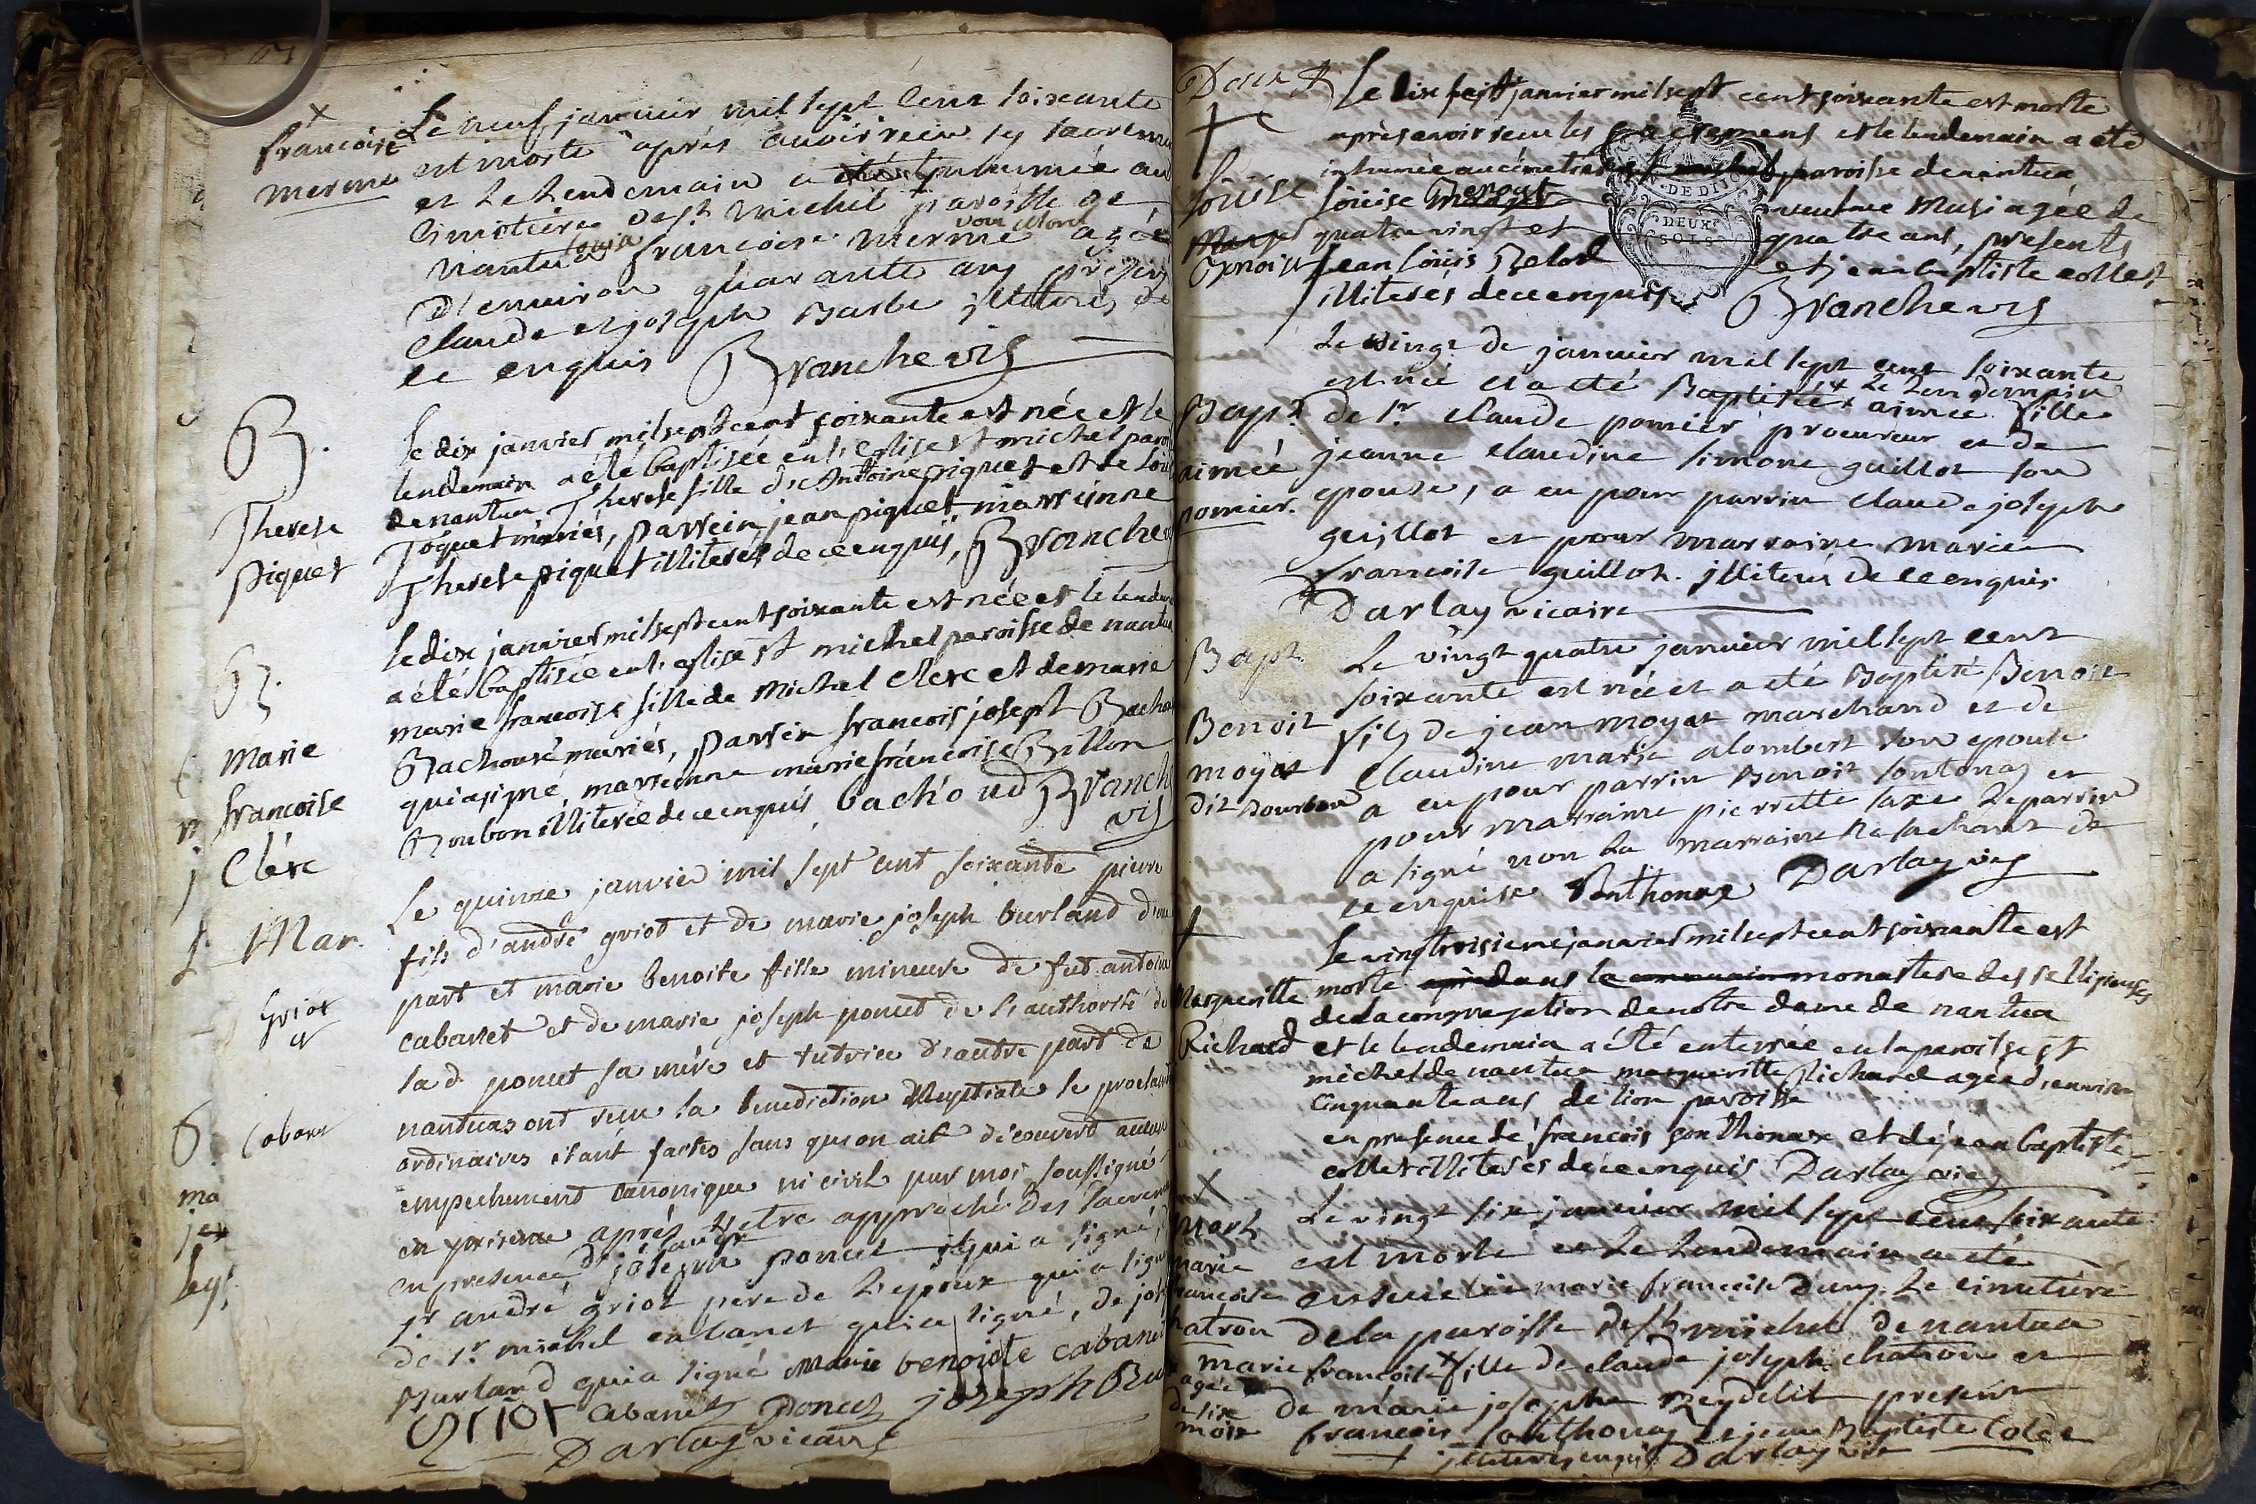 françoise
merme
Le neuf janvier mil sept cent soixante
est morte après avoir reçu les sacremens
et le lendemain a été inhumée au
cimetière de st michel paroisse de
nantua françoise merme agée
d'environ quarante ans présens
claude et joseph Barbe illiterés de
ce enquis Branche vic
B.
Therese
piquet
le dix janvier mil sept cent soixante est née et le
lendemain a été baptisée en l'eglise st michel paroisse
de nantua Therese fille d'Antoine piquet et de
mariés, parrein jean piquet marrienne
Therese piquet illiterés de ce enquis, Branche
B.
Marie
francoise
Clerc
le dix janvier mil sept cent soixante est née et le lende
a été baptisée en l'eglise st michel paroisse de nantua
marie francoise fille de Michel Clerc et de marie
Bachoud mariés, parrein francois joseph Bachoud
qui a signé, marrienne marie françoise Brillon
illiterée de ce enquis bachoud Branch
vic
Mar.
Griot
et
Cabanet
Le quinze janvier mil sept cent soixante pierre
fils d'andré griot et de marie joseph burland d'une
part et marie benoite fille mineure de feu antoine
cabanet et de marie joseph poncet de l'authorité de
la d poncet sa mére et tutrice d'autre part de
nantua ont reçu la benediction Nuptiale les proclam
ordinaires étant faites sans qu'on ait découvert aucun
empechement canonique ni civil par moi soussigné
en personne après s'etre approché des sacremens
en presence de joseph poncet qui a signé,
sr andré griot pere de l'epoux qui a signé
de sr michel cabanet qui a signé, de jos
Burland qui a signé Marie benoite cabanet
Griot Cabanet Poncet joseph Bur
Darlay vicaire
Louise
Le dix sept janvier mil sept cent soixante est morte
après avoir reçu les sacremens et le lendemain a été
inhumée au cimetière paroisse de nantua
Louise veuve agée de
quatre vingt et quatre ans, presents
jean Louis et jean baptiste collet
illiterés de ce enquis Branche vic
DE DIJON
DEUX
SOLS
Bapt.
aimée
pomier.
Le vingt de janvier mil sept cent soixante
est née et a été Baptisée le lendemain aimée fille
de sr claude pomier procureur et de
jeanne claudine simone guillot son
epouse, a eu pour parrin claude joseph
guillot et pour marraine marie
francoise guillot. illiterés de ce enquis
Darlay vicaire
Bapt.
Benoit
moyat
dit Bourbon
Le vingt quatre janvier mil sept cent
soixante est né et a été Baptisé Benoit
fils de jean moyat marchand et de
claudine marie alombert son epouse
a eu pour parrin Benoit sontonas et
pour marraine pierrette saxe le parrin
a signé non la marraine ne sachant de
ce enquise Sonthonax Darlay vic
Marguerite
Richard
le vingtroisieme janvier mil sept cent soixante est
morte dans le monastere des religieuses
de la congregation de notre dame de nantua
et le lendemain a été enterrée en la paroisse st
michel de nantua marguerite Richard agée d'environ
cinquante ans de lion paroisse
en presence de françois sonthonax et de jean baptiste
collet illiterés de ce enquis Darlay vic
Mort
marie
francoise
chatron
Le vingt six janvier mil sept cent soixante
est morte et le lendemain a été
ensevelie marie francoise dans le cimetiere
de la paroisse de st michel de nantua
marie francoise fille de claude joseph chatron et
agée
de six
mois
de marie josephe Reydelit present
francois sonthonax et jean Baptiste Colet
illiterés enquis Darlay vic